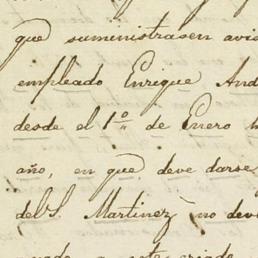 que suministrasen avis
empleado Enrique And
desde el 1º de Enero h
año, en que deve darse
del S. Martinez no dev